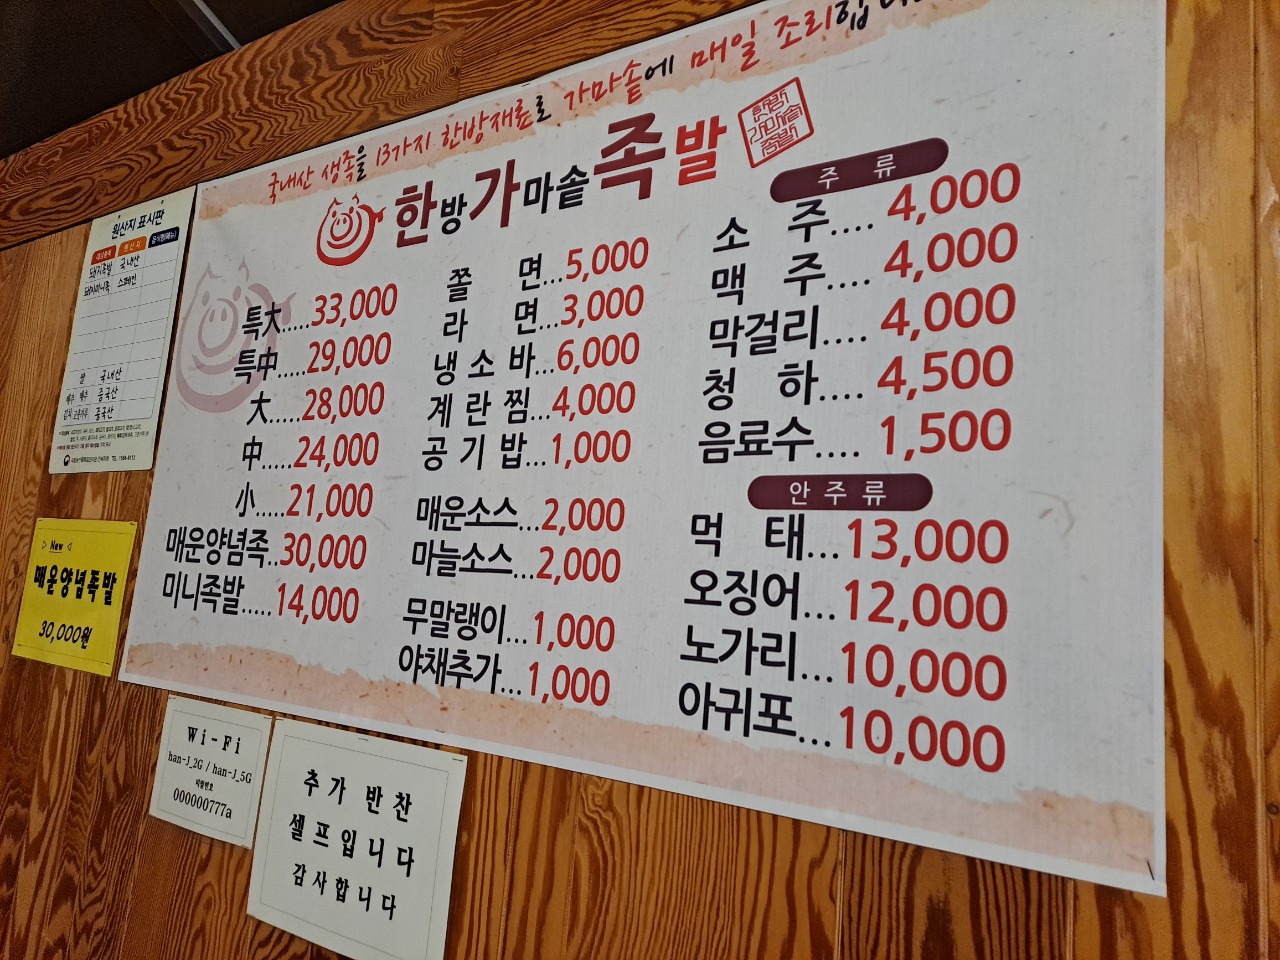 국내산 생족을 13가지 한방재료로 가마솥에 매일 조리합니다
한방가마솥족발
한방
가마솥
족발
特大.....33,000
特中.....29,000
大.....28,000
中.....24,000
小.....21,000
매운양념족..30,000
미니족발.....14,000
쫄 면...5,000
라 면...3,000
냉소바...6,000
계란찜...4,000
공기밥...1,000
매운소스...2,000
마늘소스...2,000
무말랭이...1,000
야채추가...1,000
주 류
소 주....4,000
맥 주....4,000
막걸리....4,000
청 하....4,500
음료수....1,500
안 주 류
먹 태...13,000
오징어...12,000
노가리...10,000
아귀포...10,000
원산지 표시판
원산지 음식명(메뉴)
돼지족발 국내산
돼지미니족 스페인
쌀 국내산
배추 중국산
김치 고춧가루 중국산
▷ New ◁
매운양념족발
30,000원
Wi-Fi
han-J_2G / han-J_5G
비밀번호
000000777a
추가 반찬
셀프입니다
감사합니다